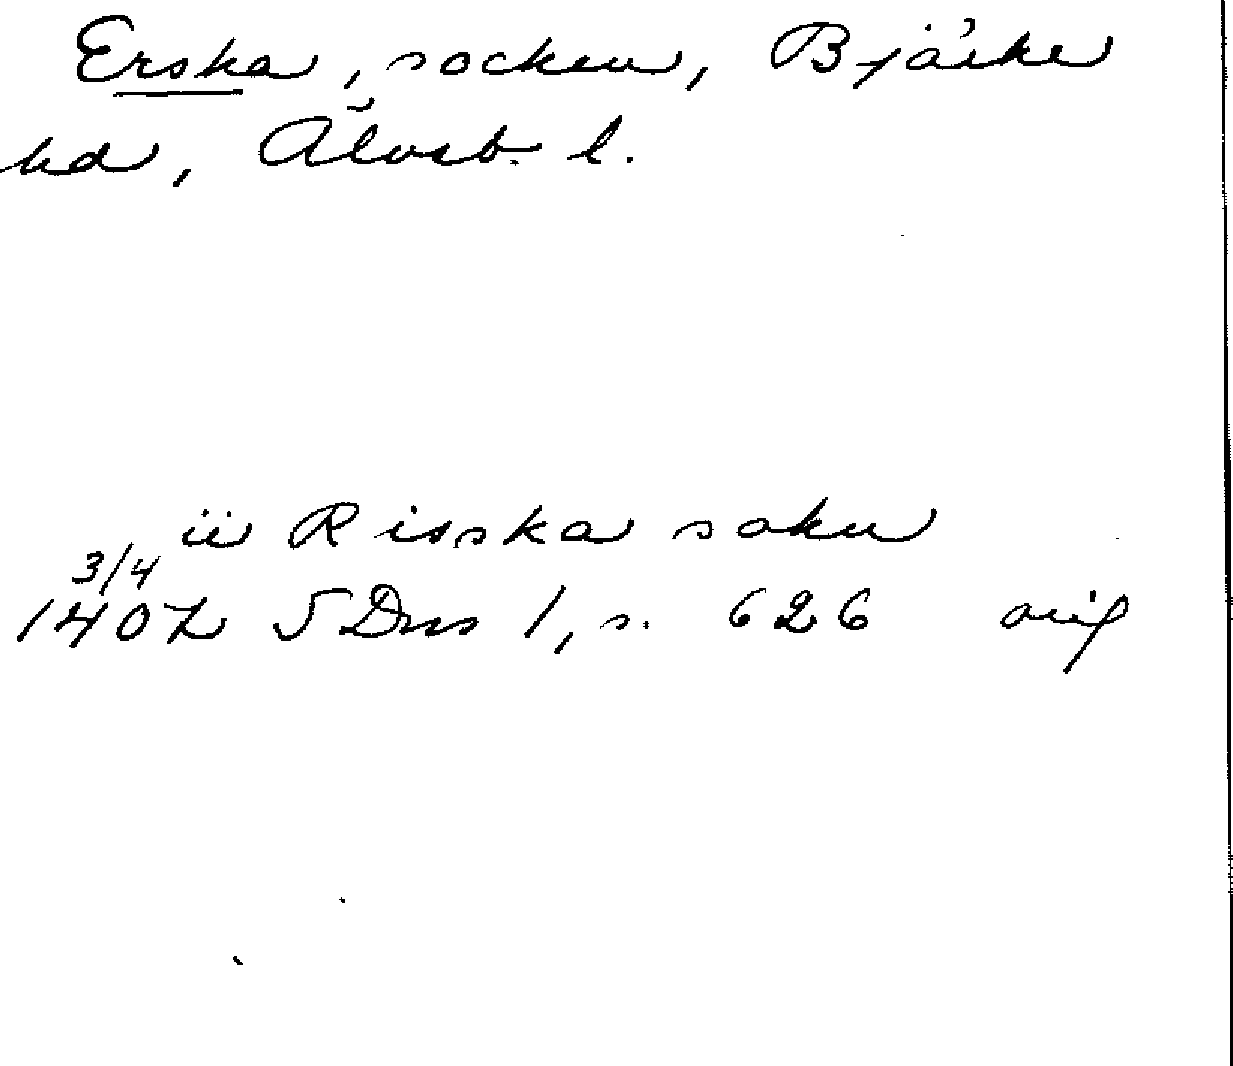 Erska, socken, Bjärke
hd, Älvsb. l.
ii Risska sokn
3/4
1407 SDns 1, s. 626 orig